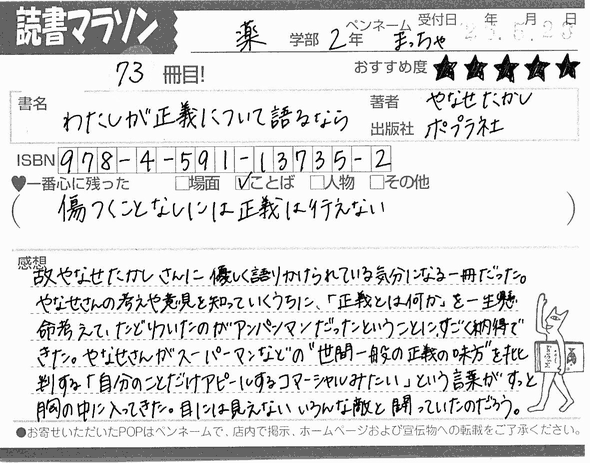 読書マラソン
薬 学部 2年 ペンネーム まっちゃ 受付日 年 月 日
73 冊目! おすすめ度 ★★★★★
書名 わたしが正義について語るなら
著者 やなせたかし
出版社 ポプラ社
ISBN 978-4-591-13735-2
♥一番心に残った □場面 ☑ことば □人物 □その他
(傷つくことなしには正義は行えない)
感想
故やなせたかしさんに優しく語りかけられている気分になる一冊だった。
やなせさんの考えや意見を知っていくうちに、「正義とは何か」を一生懸
命考えて、たどりついたのがアンパンマンだったということに、すごく納得で
きた。やなせさんがスーパーマンなどの"世間一般の正義の味方"を批
判する「自分のことだけアピールするコマーシャルみたい」という言葉がすっと
胸の中に入ってきた。目には見えないいろんな敵と闘っていたのだろう。
●お寄せいただいたPOPはペンネームで、店内で掲示、ホームページおよび宣伝物への転載をご了承ください。